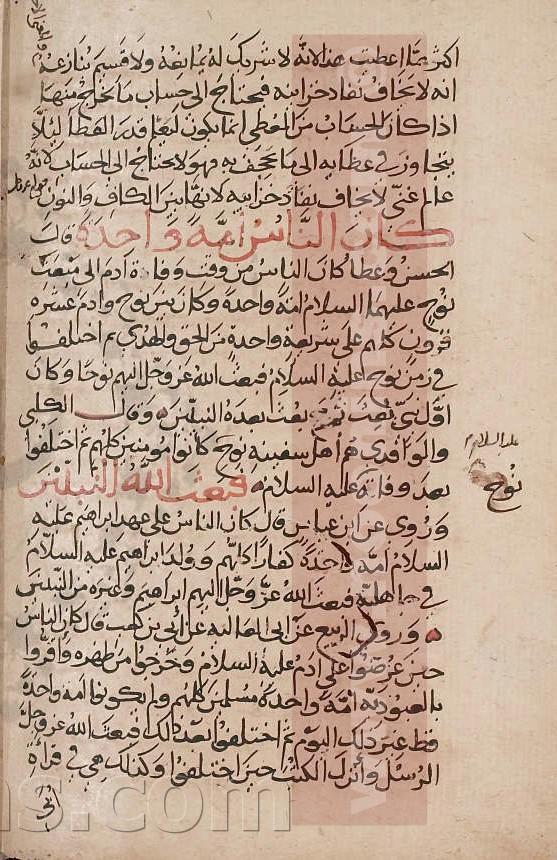 اكثر مما اعطيت هذا لانه لا شريك له يمانعه ولا قسيم ينازعه
انه لا يخاف نفاد خزاينه فيحتاج الى حساب ما يخرج منها
اذا كان الحساب من المعطي انما يكون ليعلم قدر العطا ليلا
يتجاوز في عطايه الى ما يجحف به فهو لا يحتاج الى الحساب لانه
عالم غني لا يخاف نفاد خزاينه لانها بين الكاف والنون
كان الناس امة واحدة قال
الحسن وعطا كان الناس من وقت وفاة ادم الى مبعث
نوح عليهما السلام امة واحدة وكان بين نوح وادم عشرة
قرون كلهم على شريعة واحدة من الحق والهدى ثم اختلفوا
في زمن نوح عليه السلام فبعث الله عز وجل اليهم نوحا وكان
اول نبي بعث ثم بعث بعده النبيين وقال الكلبي
والواقدي هم اهل سفينة نوح كانوا مومنين كلهم ثم اختلفوا
بعد وفاة عليه السلام فبعث الله النبيين
وروي عن ابن عباس قال كان الناس على عهد ابراهيم عليه
السلام امة واحدة كفارا كلهم وولد ابراهيم عليه السلام
في جاهلية فبعث الله عز وجل اليهم ابراهيم وغيره من النبيين
وروى الربيع عن ابي العالية عن ابي بن كعب قال كان الناس
حين عرضوا على ادم عليه السلام وخرجوا من ظهره واقروا
بالعبودية امة واحدة مسلمين كلهم ولم يكونوا امة واحدة
قط غير ذلك اليوم ثم اختلفوا بعد ذلك فبعث الله عز وجل
الرسل وانزل الكتب حين اختلفوا وكذلك هي في قراءة
ابي
عليه السلام
نوح
ns.com